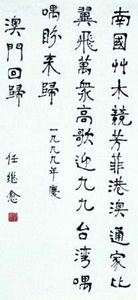 南國艸木競芳菲港澳通家比
翼飛萬衆高歌迎九九台湾喁
喁盼来歸 一九九九年慶
澳門回歸 任继愈